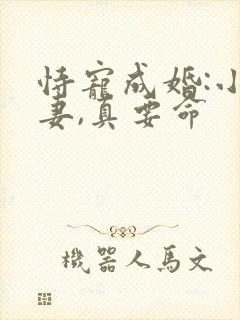 恃寵成婚:小
妻,真要命
機器人馬文